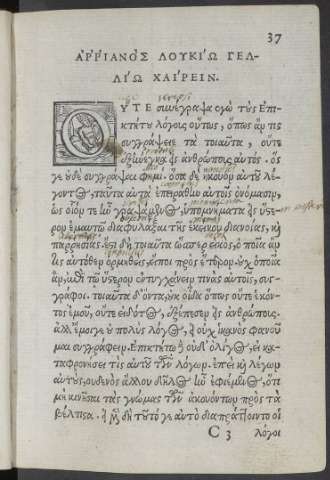 37
ΑΡΡΙΑΝΟΣ ΛΟΥΚΙΩ ΓΕΛ-
ΛΙΩ ΧΑΙΡΕΙΝ.
ΟΥΤΕ συνέγραψα ἐγὼ τοὺς Ἐπι-
κτήτου λόγους οὕτως, ὅπως ἄν τις
συγγράψειε τὰ τοιαῦτα, οὔτε
ἐξήνεγκα εἰς ἀνθρώπους αὐτός. ὅς
γε οὐδὲ συγγράψαι φημί. ὅσα δὲ ἤκουον αὐτοῦ λέ-
γοντος, ταῦτα αὐτὰ ἐπειράθην αὐτοῖς ὀνόμασιν,
ὡς οἷόν τε ἦν γραψάμενος, ὑπομνήματα εἰς ὕστε-
ρον ἐμαυτῷ διαφυλάξαι τῆς ἐκείνου διανοίας, καὶ
παρρησίας. ἔστι δὴ τοιαῦτα ὥσπερ εἰκὸς, ὁποῖα ἄν
τις αὐτόθεν ὁρμηθεὶς, εἴποι πρὸς ἕτερον. οὐχ ὁποῖα
ἄν, ἐπὶ τῷ ὕστερον ἐντυγχάνειν τινὰς αὐτοῖς, συγ-
γράφοι. τοιαῦτα δ' ὄντα, οὐκ οἶδα ὅπως οὔτε ἑκόν-
τος ἐμοῦ, οὔτε εἰδότος, ἐξέπεσεν εἰς ἀνθρώπους.
ἀλλ' ἔμοιγε οὐ πολὺς λόγος, εἰ οὐχ ἱκανὸς φανοῦ-
μαι συγγράφειν. Ἐπικτήτῳ τε οὐδ' ὀλίγος, εἰ κα-
ταφρονήσει τὶς αὐτοῦ τῶν λόγων. ἐπεὶ καὶ λέγων
αὐτοὺς, οὐδενὸς ἄλλου δῆλος ἦν ἐφιέμενος, ὅτι
μὴ κινῆσαι τὰς γνώμας τῶν ἀκουόντων πρὸς τὰ
βέλτιστα. εἰ μὲν δὴ τοῦτό γε αὐτὸ διαπράττοιντο οἱ
C 3 λόγοι